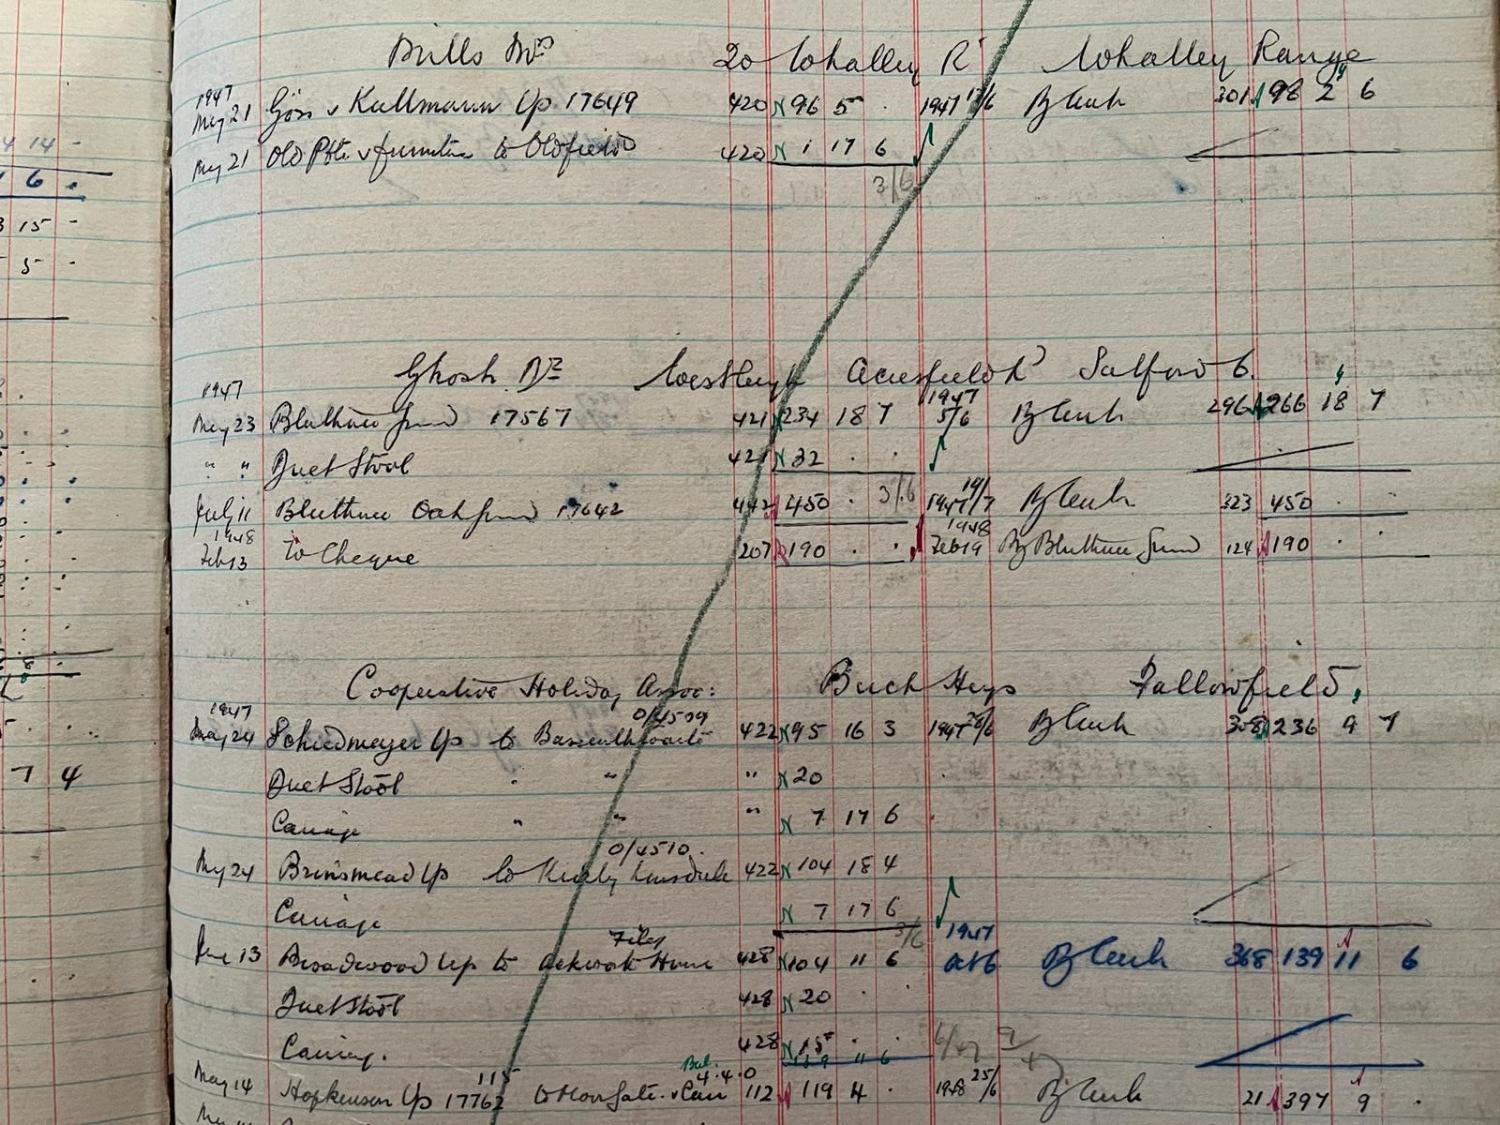 Mills Mrs 20 Whalley Rd Whalley Range
1947
May 21 Gors & Kallmann Up 17649 420 96 5 . 1947 17/6 By Cash 301 98 2 6
May 21 Old Pfte & furniture to Oldfield 420 1 17 6
3/6
Ghosh Dr Westleigh Acresfield Rd Salford 6.
1947
May 23 Bluthner Grand 17567 421 234 18 7 1947 5/6 By Cash 296 266 18 7
" " Duet Stool 421 32 . .
3/6
July 11 Bluthner Oak Grand 17642 442 450 . 1947 14/7 By Cash 323 450 . .
1948 1948
Feb 13 To Cheque 207 190 . . Feb 19 By Bluthner Grand 124 190 . .
Cooperative Holiday Assoc: Birch Heys Fallowfield,
1947 0/4509
May 24 Schiedmayer Up to Bassenthwaite 422 95 16 3 1947 26/6 By Cash 308 236 9 7
Duet Stool " " " 20
Carriage " " " 7 17 6
0/4510.
May 24 Brinsmead Up to Kirkby Lonsdale 422 104 18 4
Carriage 7 17 6
3/6
Filey 1947
June 13 Broadwood Up to Ackworth House 428 104 11 6 Oct 6 By Cash 368 139 11 6
Duet Stool 428 20 . .
Carriage. 428 15 . .
139 11 6
Bal.
115 4.4.0
May 14 Hopkinson Up 17762 to Moorgate & Carr 112 119 4 . 1948 25/6 By Cash 21 397 9 .